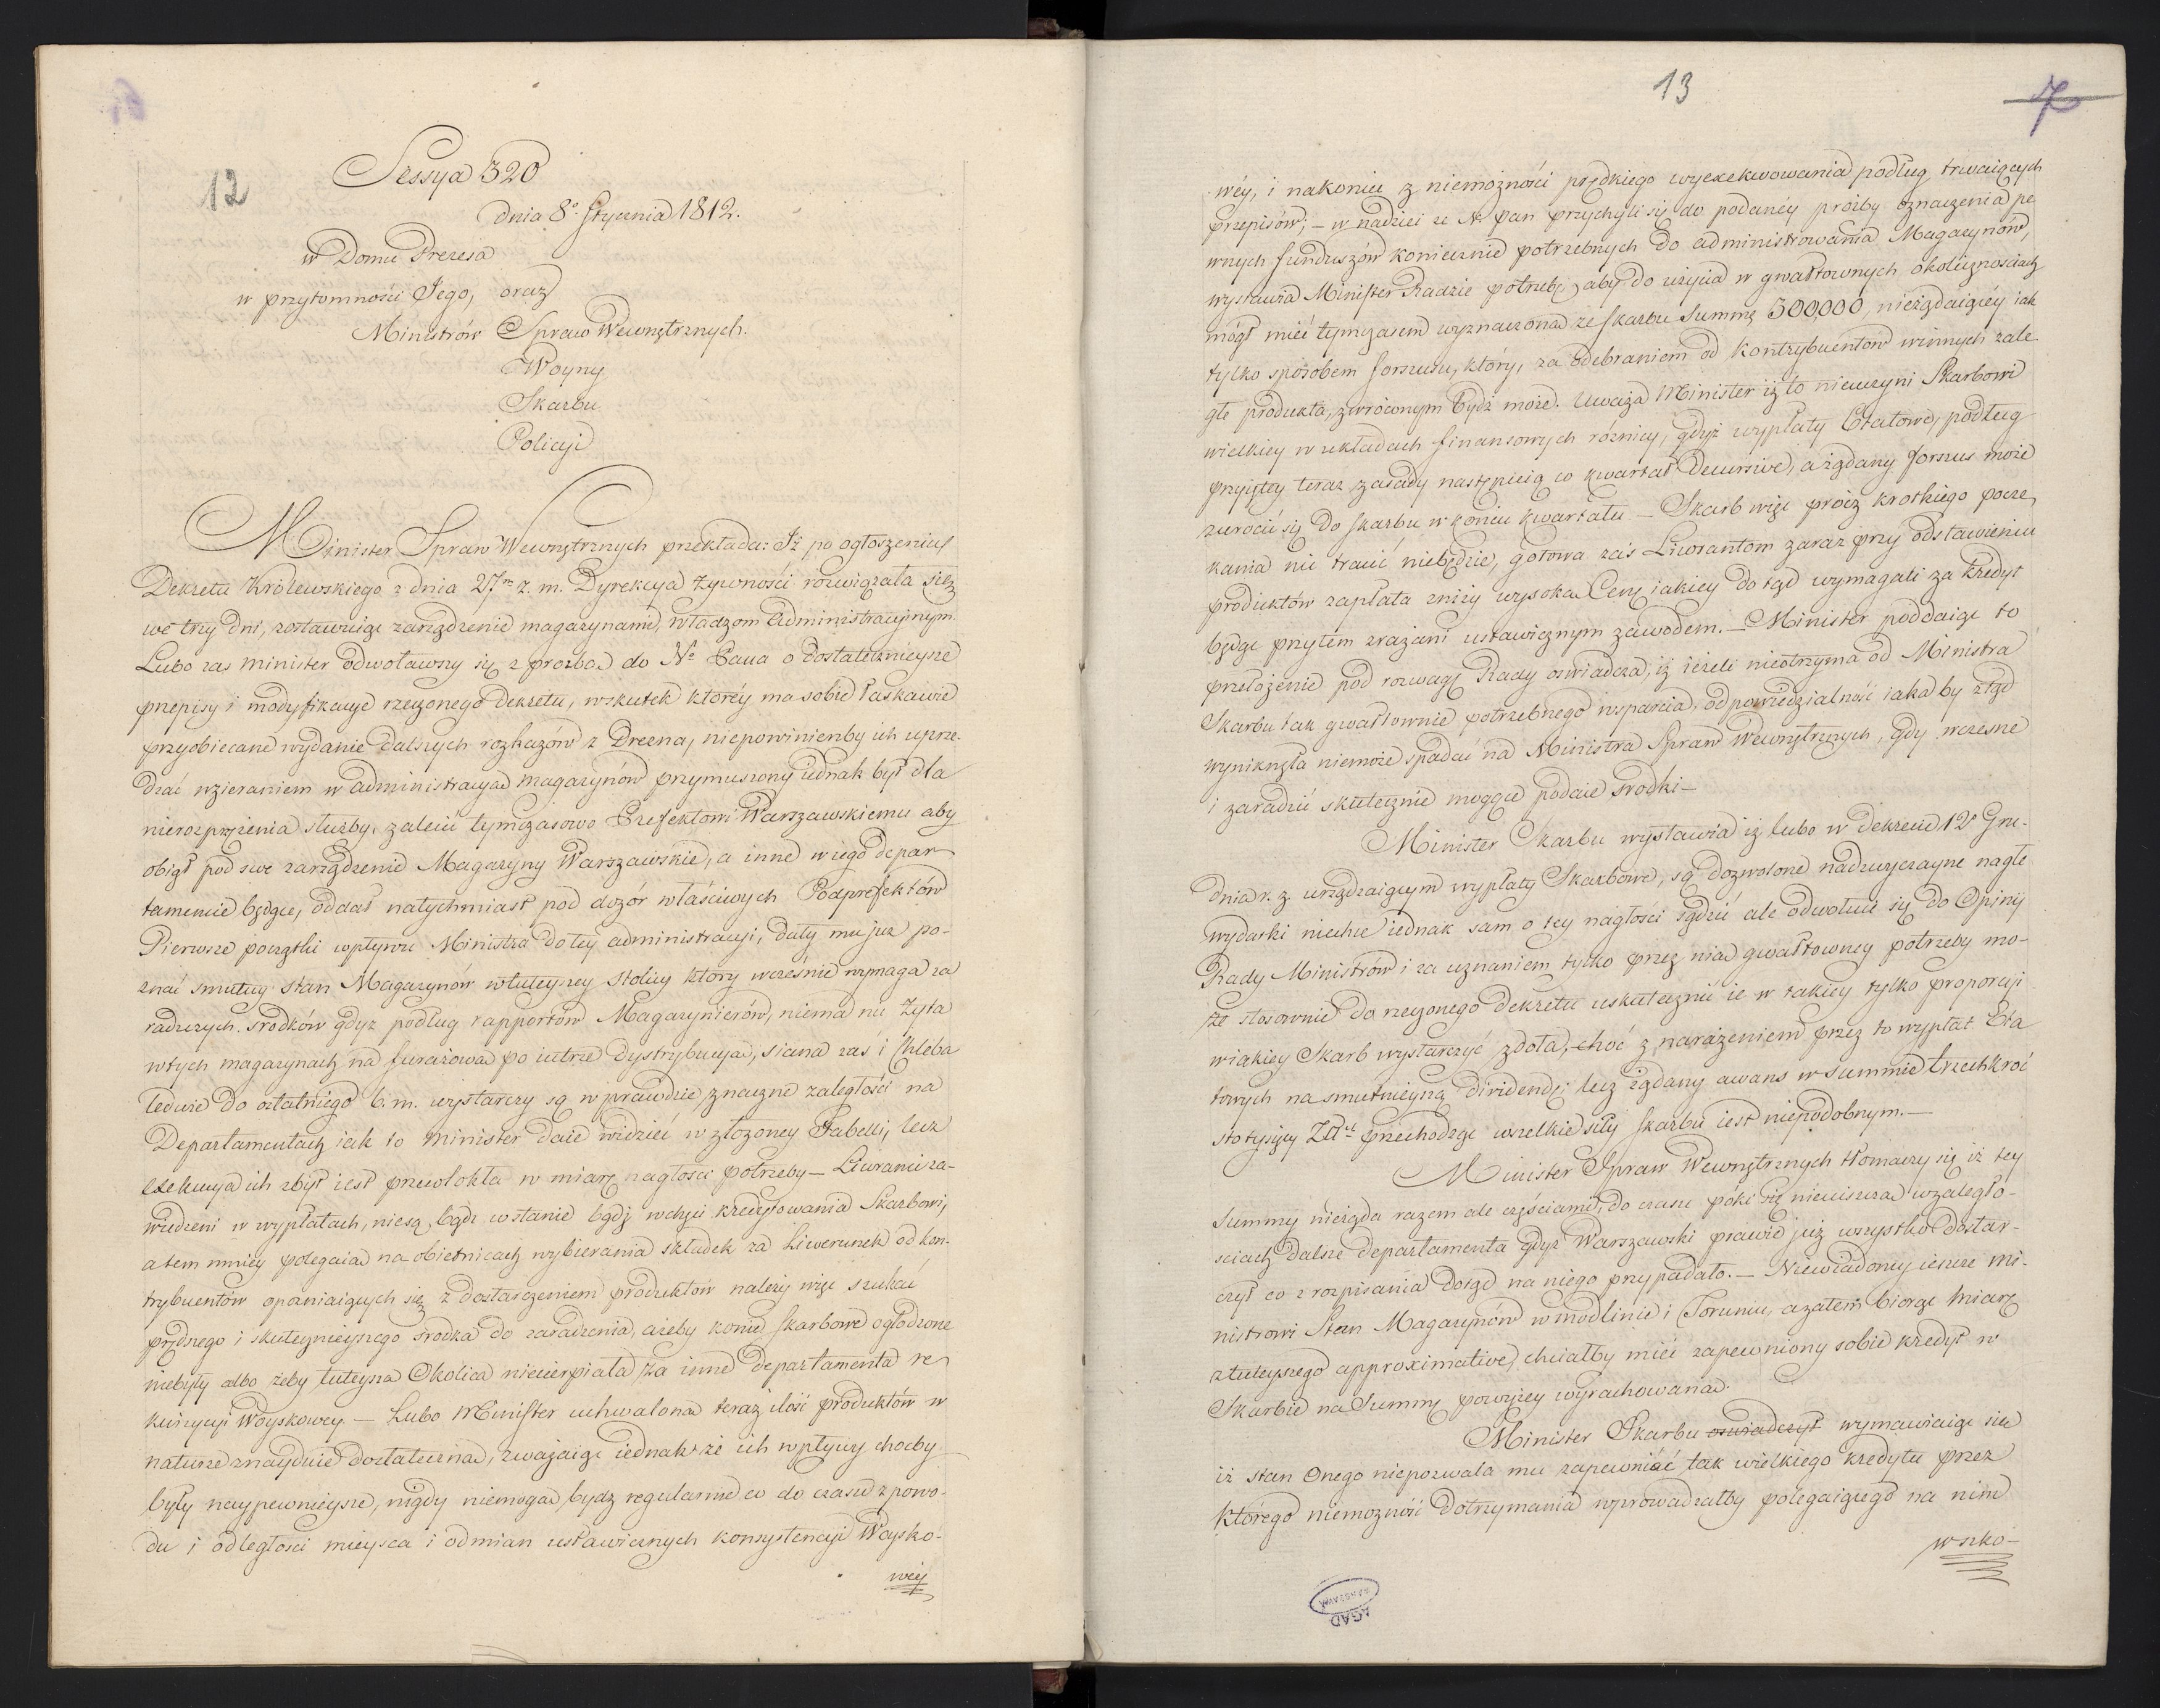 12
Sessya 320
dnia 8º Stycznia 1812.
w Domu Prezesa
w przytomności Jego, oraz
Ministrów Spraw Wewnętrznych.
Woyny
Skarbu
Policyi
Minister Spraw Wewnętrznych przekłada: Iż po ogłoszeniu
Dekretu Królewskiego z dnia 27 z. m. Dyrekcya żywności rozwiązała się
we trzy dni, zostawuiąc zarządzenie magazynami, władzom Administracyinym.
Lubo zas Minister odwoławszy się z prozbą do Nº Pana o dostatecznieysze
przepisy i modyfikacye rzeczonego Dekretu, wskutek którey ma sobie łaskawie
przyobiecane wydanie dalszych rozkazów z Drezna, niepowinienby ich uprze-
dzać wzieraniem w administracyą magazynów przymuszony iednak był dla
nierozprzężenia służby, zalecić tymczasowo Prefektowi Warszawskiemu aby
obiął pod swe zarządzenie Magazyny Warszawskie, a inne w iego depar
tamencie będące, oddał natychmiast pod dozór właściwych Podprefektów
Pierwsze początki wpływu Ministra do tey administracyi, dały mu już po-
znać smutny stan Magazynów wtuteyszey stolicy który wcześnie wymaga za
radczych środków gdyż podług rapportów Magazynierów, niema nic Żyta
wtych magazynach na furażową po iutrze dystrybucyą, siana zas i Chleba
ledwie do ostatniego b. m. wystarczy są wprawdzie znaczne zaległości na
Departamentach iak to Minister daie widzieć w złożoney Tabelli, lecz
exekucya ich zbyt iest przewlokła w miarę nagłości potrzeby — Liweranci za-
wiedzeni w wypłatach, niesą bądz wstanie bądź wchęci kredytowania Skarbowi,
a tem mniey polegaią na obietnicach wybierania składek za Liwerunek od kon-
trybuentów opozniaiących się z dostarczeniem produktów należy więc szukać
prędszego i skutecznieyszego środka do zaradzenia, ażeby konie skarbowe ogłodzone
niebyły albo żeby tuteysza Okolica niecierpiała za inne departamenta re
kwizycyi Woyskowey. — Lubo Minister uchwaloną teraz ilość produktów w
naturze znayduie dostateczną, zważaiąc iednak że ich wpływy choćby
były naypewnieysze, nigdy niemogą bydz regularne co do czasu z powo-
du i odległości mieysca i odmian ustawicznych konsystencyi Woysko-
wey
13
7
wéy, i nakoniec z niemożności prędkiego wyexekwowania podług trwaiących
przepisów; — w nadziei że N. Pan przychyli się do podanéy prośby oznaczenia pe
wnych funduszów koniecznie potrzebnych do administrowania Magazynów,
wystawia Minister Radzie potrzebę aby do użycia w gwałtownych okolicznościach
mógł mieć tymczasem wyznaczoną ze skarbu Summę 300,000, nieżądaiąćéy iak
tylko sposobem forszusu, który, za odebraniem od kontrybuentów winnych zale
głe produkta, zwróconym bydź może. Uważa Minister iż to nieuczyni Skarbowi
wielkiey w układach finansowych różnicy, gdyż wypłaty Etatowe, podług
przyiętey teraz zasady następuią co kwartał decursive, a żądany forszus może
zwrócić się do skarbu w końcu kwartału — Skarb więc prócz krótkiego pocze
kania nic tracić niebędzie, gotowa zaś Liwerantom zaraz przy odstawieniu
produktów zapłata zniży wysoką Cenę iakiey dotąd wymagali za kredyt
będąc przytem zrażani ustawicznym zawodem. — Minister poddaiąc to
przełożenie pod rozwagę Rady oswiadcza, iż ieżeli nieotrzyma od Ministra
Skarbu tak gwałtownie potrzebnego wsparcia, odpowiedzialność iaka by ztąd
wyniknęła niemoże spadać na Ministra Spraw Wewnętrznych, gdy wczesne
i zaradzić skutecznie mogące podaie środki —
Minister Skarbu wystawia iż lubo w dekrecie 12 Gru-
dnia r. z. urządzaiącym wypłaty Skarbowe, są dozwolone nadzwyczayne nagłe
wydatki niechce iednak sam o tey nagłości sądzić ale odwołuie się do Opinij
Rady Ministrów i za uznaniem tylko przez nią gwałtowney potrzeby mo-
że stosownie do rzeczonego dekretu uskutecznić ie w takiey tylko proporcyi
wiakiey Skarb wystarczyć zdoła, choć z narażeniem przez to wypłat Eta
towych na smutnieyszą dividendę; lecz żądany awans w Summie trzechkroć
sto tysięcy Złł. przechodząc wszelkie siły skarbu iest niepodobnym. —
Minister Spraw Wewnętrznych tłomaczy się iż tey
summy nieżąda razem ale częściami, do czasu póki się nieuiszczą wzaległo-
sciach dalsze departamenta gdyż Warszawski prawie już wszystko dostar-
czył co z rozpisania dotąd na niego przypadało. — Niewiadomy ieszcze Mi-
nistrowi Stan Magazynów w Modlinie i Toruniu, azatem biorąc miarę
z tuteyszego approximative, chciałby mieć zapewniony sobie kredyt w
Skarbie na Summę powyżey wyrachowaną.
Minister Skarbu oswiadczył wymawiaiąc się
iż stan Onego niepozwala mu zapewniać tak wielkiego kredytu przez
którego niemożność dotrzymania wprowadzałby polegaiącego na nim
w szko-
AGAD
WARSZAWA